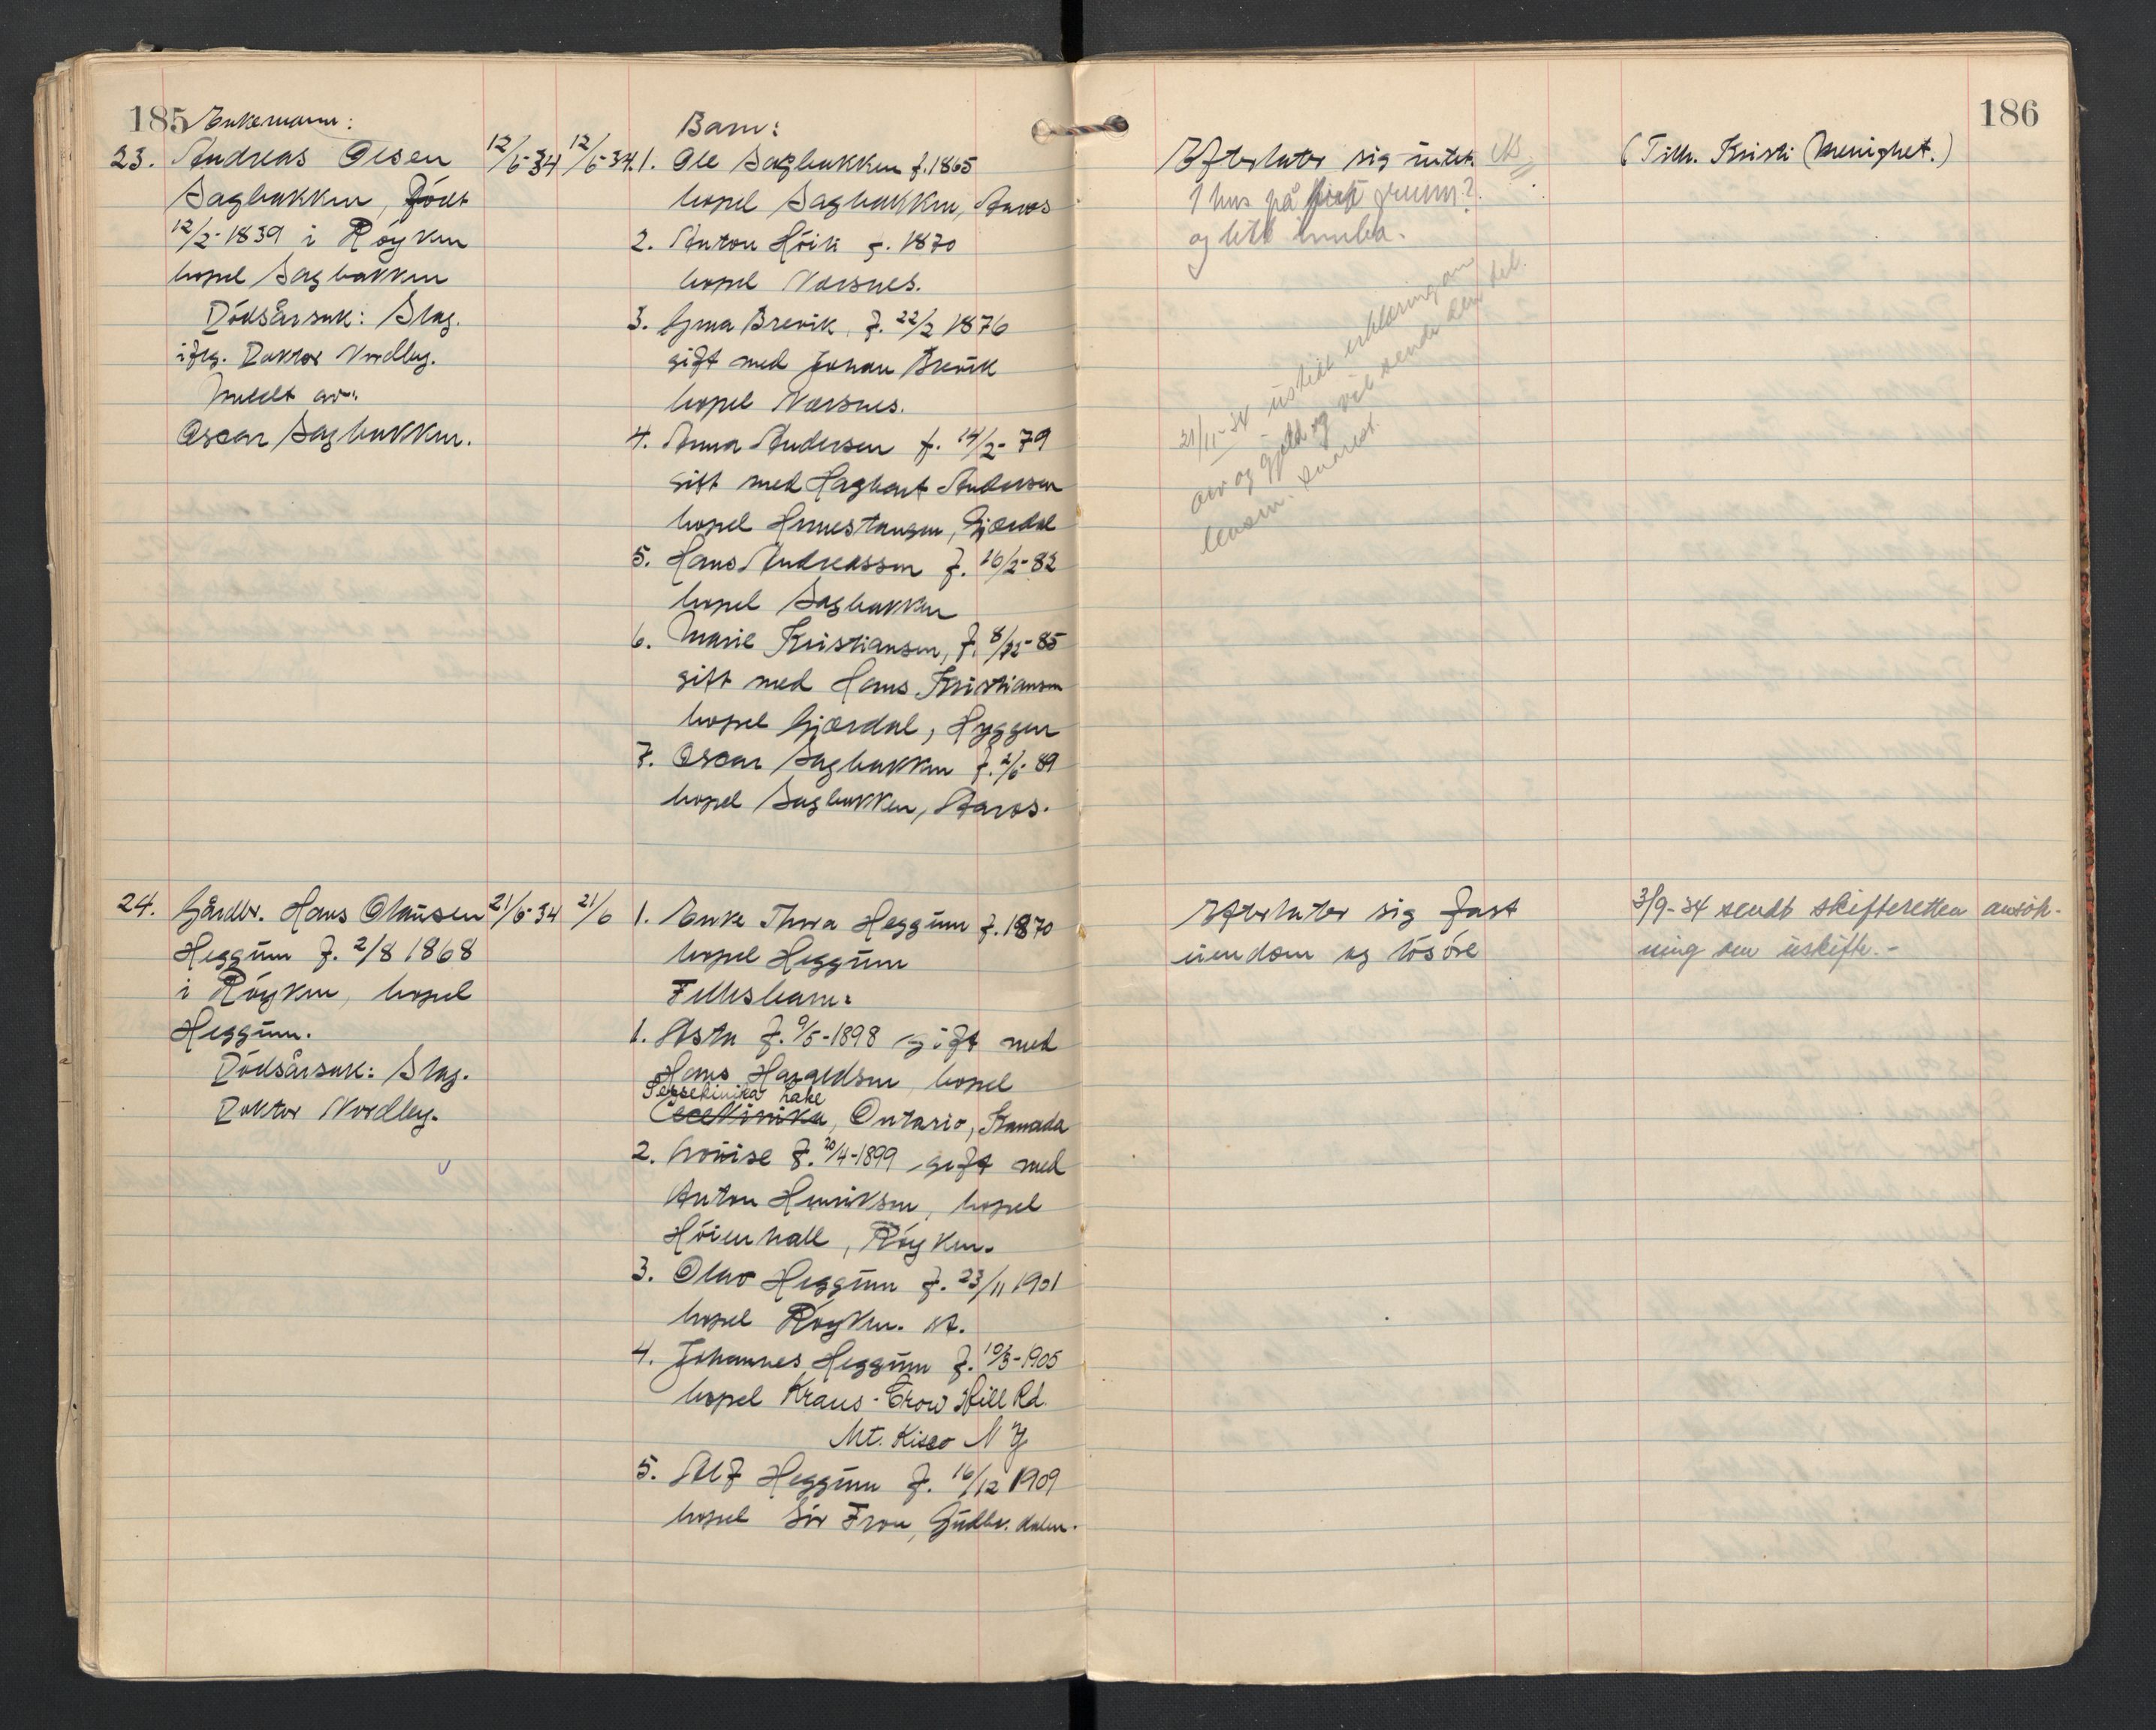 185
Enkemann:
23. Andreas Olsen
Sagbakken, Født
12/2-1839 i Røyken
bopel Sagbakken
Dødsårsak: Slag.
iflg. Doktor Nordby.
Meldt av:
Oscar Sagbakken.
12/6-34 12/6-34.
Barn:
1. Ole Sagbakken f. 1865
bopel Sagbakken, Åaros
2. Anton Høik f. 1870
bopel Nærsnes.
3. Gina Brevik, f. 22/2 1876
gift med Johan Brevik
bopel Nærsnes.
4. Anna Andersen f. 14/2-79
gift med Hagbart Andersen
bopel Hernestangen, Gjærdal
5. Hans Andreassen f. 26/2-82
bopel Sagbakken
6. Marie Kristiansen, f. 8/12-85
gift med Hans Kristiansen
bopel Gjærdal, Hyggen
7. Oscar Sagbakken f. 2/6-89
bopel Sagbakken, Åaros.
24. Gårdbr. Hans Olausen
Heggum f. 2/8 1868
i Røyken, bopel
Heggum.
Dødsårsak: Slag.
Doktor Nordby.
21/6-34 21/6
1. Enke Thora Heggum f. 1870
bopel Heggum
Fellesbarn:
1. Asta f. 9/5-1898 gift med
Hans Haraldsen, bopel
Sessekinika Lake
, Ontario, Kanada
2. Lovise f. 20/4-1899 gift med
Anton Henriksen, bopel
Høienhall, Røyken.
3. Olav Heggum f. 23/11 1901
bopel Røyken. st.
4. Johannes Heggum f. 10/3-1905
bopel Kraus-Crow Hill Rd.
Mt. Kisco N Y
5. Alf Heggum f. 16/12 1909
bopel Sør Fron, Gudbr. dalen.
186
Efterlater sig intet.
1 hus på grunn?
og litt innbo.
21/11-34 utstedt erklæring om
arv og gjeld og vil sende den til
lensm. snarest.
(Tilh. Kristi Menighet.)
Efterlater sig fast
eiendom og løsøre
3/9-34 sendt skifteretten ansøk-
ning om uskifte.-